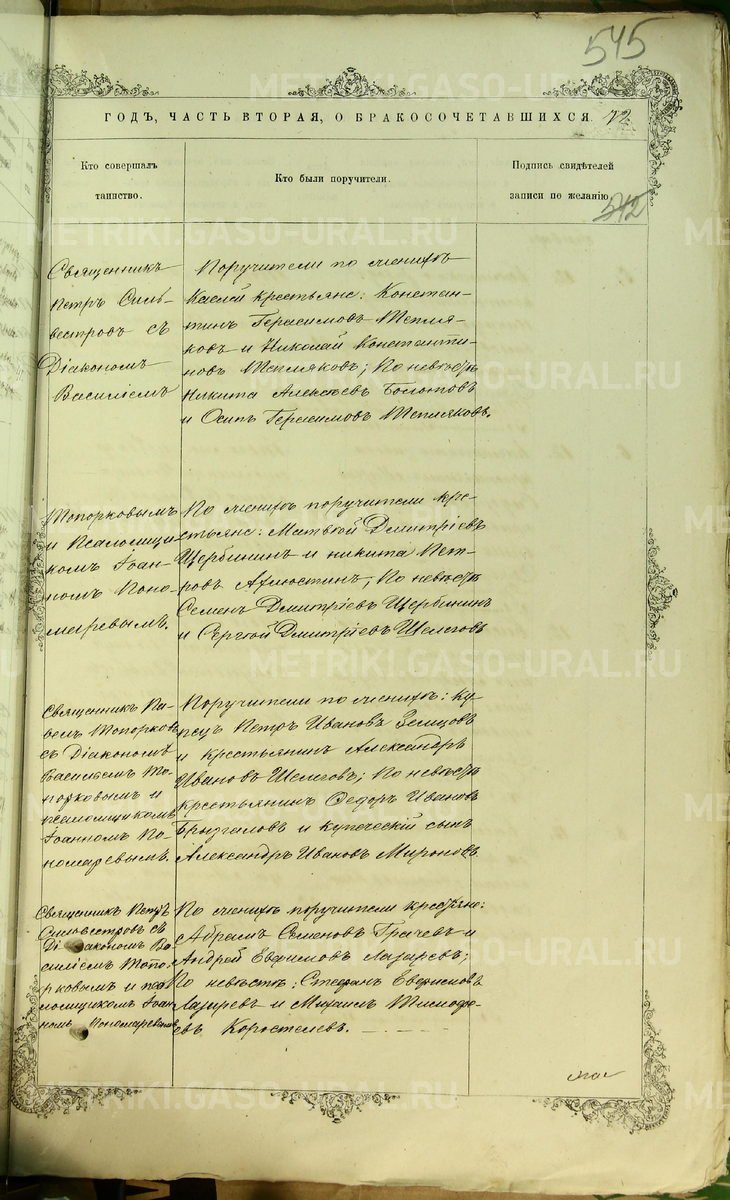 545
ГОДЪ, ЧАСТЬ ВТОРАЯ, О БРАКОСОЧЕТАВШИХСЯ.
Кто совершалъ
таинство.
Кто были поручители.
Подпись свидѣтелей
записи по желанію.
542
Священникъ
Петръ Силь-
вестровъ съ
Діакономъ
Василіемъ
Поручители по женихѣ
крестьяне: Констан-
тинъ Герасимовъ Тепля-
ковъ и Николай Константи-
новъ Тепляковъ; По невѣстѣ
Никита Алексѣевъ Болотовъ
и Осипъ Герасимовъ Тепляковъ.
Топорковымъ
и Псаломщи-
комъ Іоан-
номъ Поно-
маревымъ.
По женихѣ поручители кре-
стьяне: Матвѣй Дмитріевъ
Щербининъ и Никита Пет-
ровъ По невѣстѣ
Семенъ Дмитріевъ Щербининъ
и Сергѣй Дмитріевъ
Священникъ Па-
велъ Топорковъ
съ Діакономъ
Василіемъ То-
порковымъ и
псаломщикомъ
Іоанномъ По-
номаревымъ.
Поручители по женихѣ: Ку-
пецъ Петръ Ивановъ Земцовъ
и крестьянинъ Александръ
Ивановъ По невѣстѣ
крестьянинъ Ѳедоръ Ивановъ
Брызгаловъ и купеческій сынъ
Александръ Ивановъ Мироновъ.
Священникъ Петръ
Сильвестровъ съ
Діакономъ Ва-
силіемъ Топо-
рковымъ и пса-
ломщикомъ Іоан-
номъ Пономаревымъ
По женихѣ поручители крестьяне:
Абрамъ Семеновъ Грачевъ и
Андрей Евфимовъ Лазаревъ;
По невѣстѣ: Стефанъ Евфимовъ
Лазаревъ и Михаилъ Тимофе-
евъ Коростелевъ.
METRIKI.GASO-URAL.RU